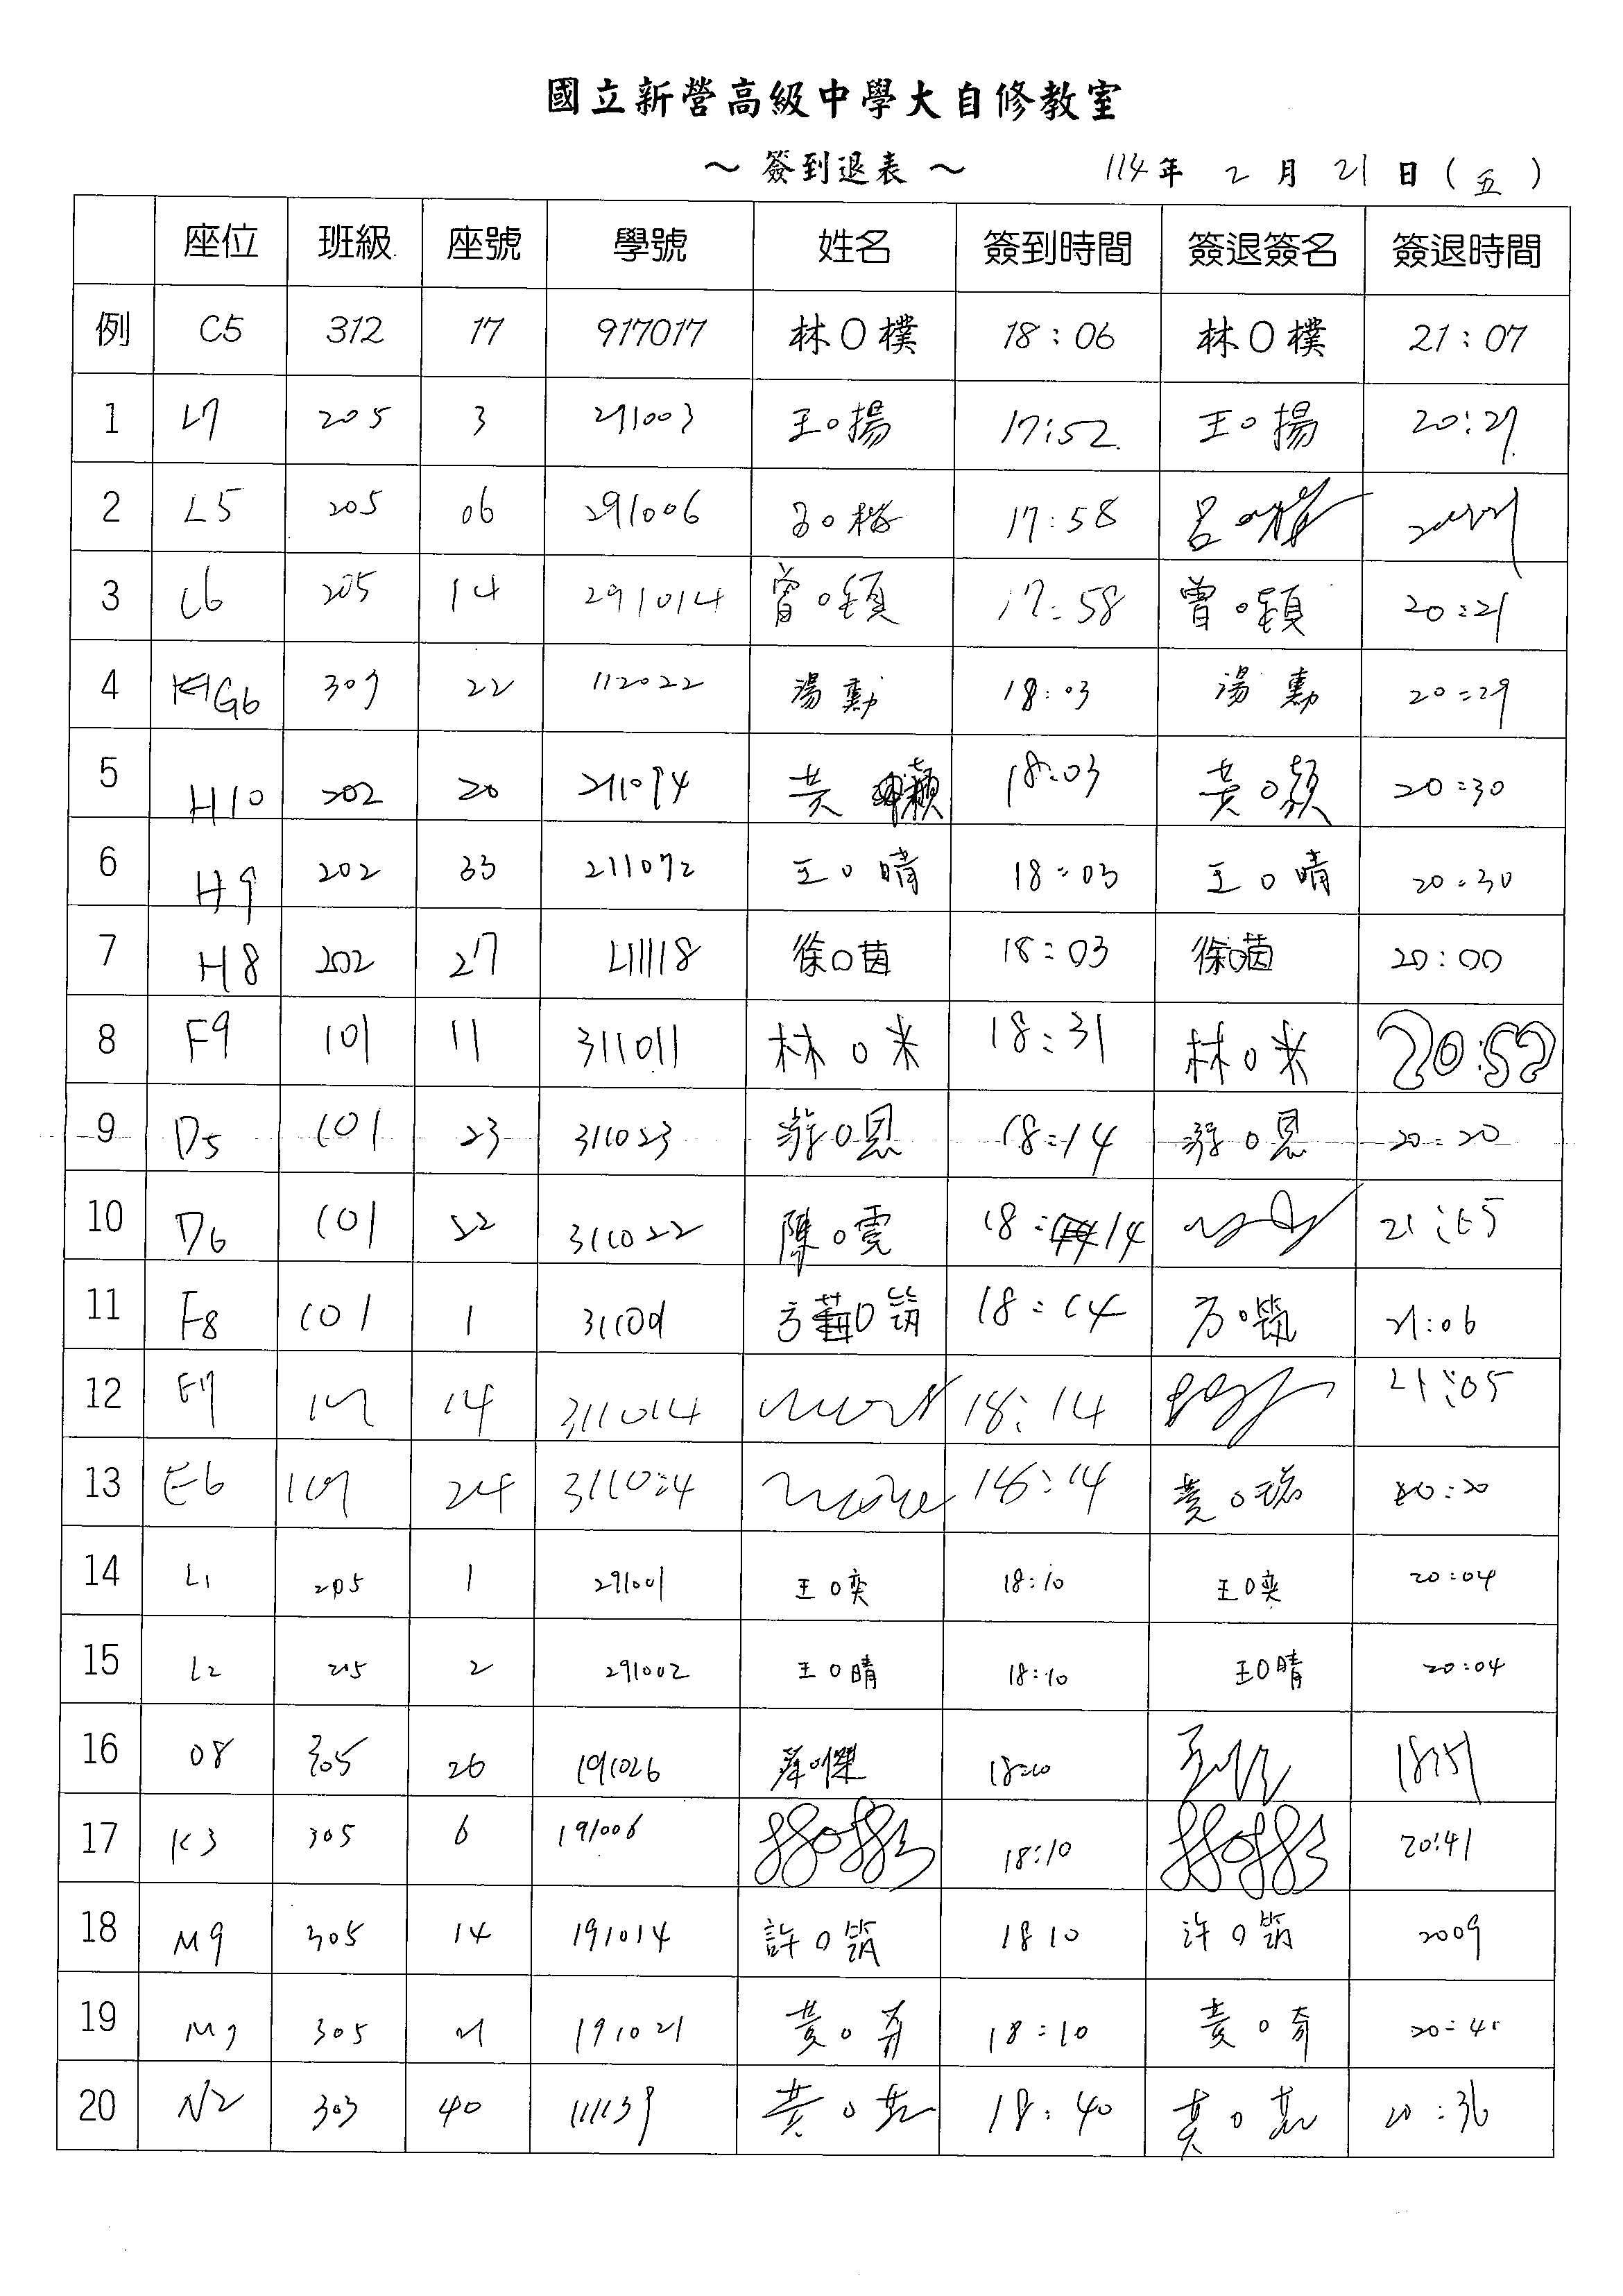 國立新營高級中學大自修教室
～ 簽到退表 ～ 114年 2 月 21 日 (五)
座位 班級 座號 學號 姓名 簽到時間 簽退簽名 簽退時間
例 C5 312 17 917017 林O樸 18:06 林O樸 21:07
1 L7 205 3 291003 王O揚 17:52 王O揚 20:21
2 L5 205 06 291006 17:58
3 L6 205 14 291014 曾O穎 17:58 曾O穎 20:21
4 G6 22 112022 湯勳 18:03 湯勳 20:29
5 H10 202 20 黃 18:03 黃O穎 20:30
6 H9 202 33 211072 王O晴 18:03 王O晴 20:30
7 H8 202 27 徐O茵 18:03 徐O茵 20:00
8 F9 101 11 311011 林O米 18:31 林O米 20:52
9 D5 101 23 311023 游O恩 18:14 游O恩 20:20
10 D6 101 22 311022 陳O霓 18:14
11 F8 101 1 311001 方O筑 18:14 方O筑 21:06
12 14 311014 18:14 21:05
13 E6 24 18:14 黃O瑜 20:20
14 L1 205 1 291001 王O奕 18:10 王O奕 20:04
15 L2 205 2 291002 王O晴 18:10 王O晴 20:04
16 O8 305 26 191026 18:10
17 K3 305 6 191006 18:10 20:41
18 M9 305 14 191014 許O筑 18 10 许O筑 2009
19 305 21 191021 黃O 18:10 黃O奇 20:41
20 N2 303 40 111139 黃O 18:40 黃O 20:36